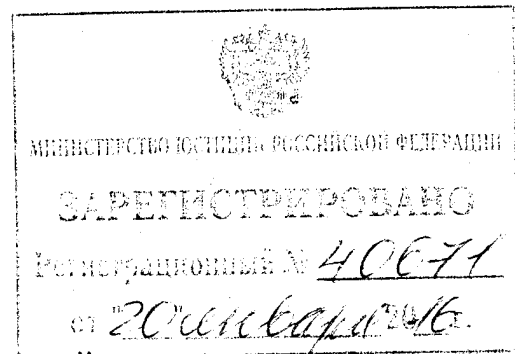 МИНИСТЕРСТВО ЮСТИЦИИ РОССИЙСКОЙ ФЕДЕРАЦИИ
ЗАРЕГИСТРИРОВАНО
Регистрационный № 40671
от "20" января 2016 г.